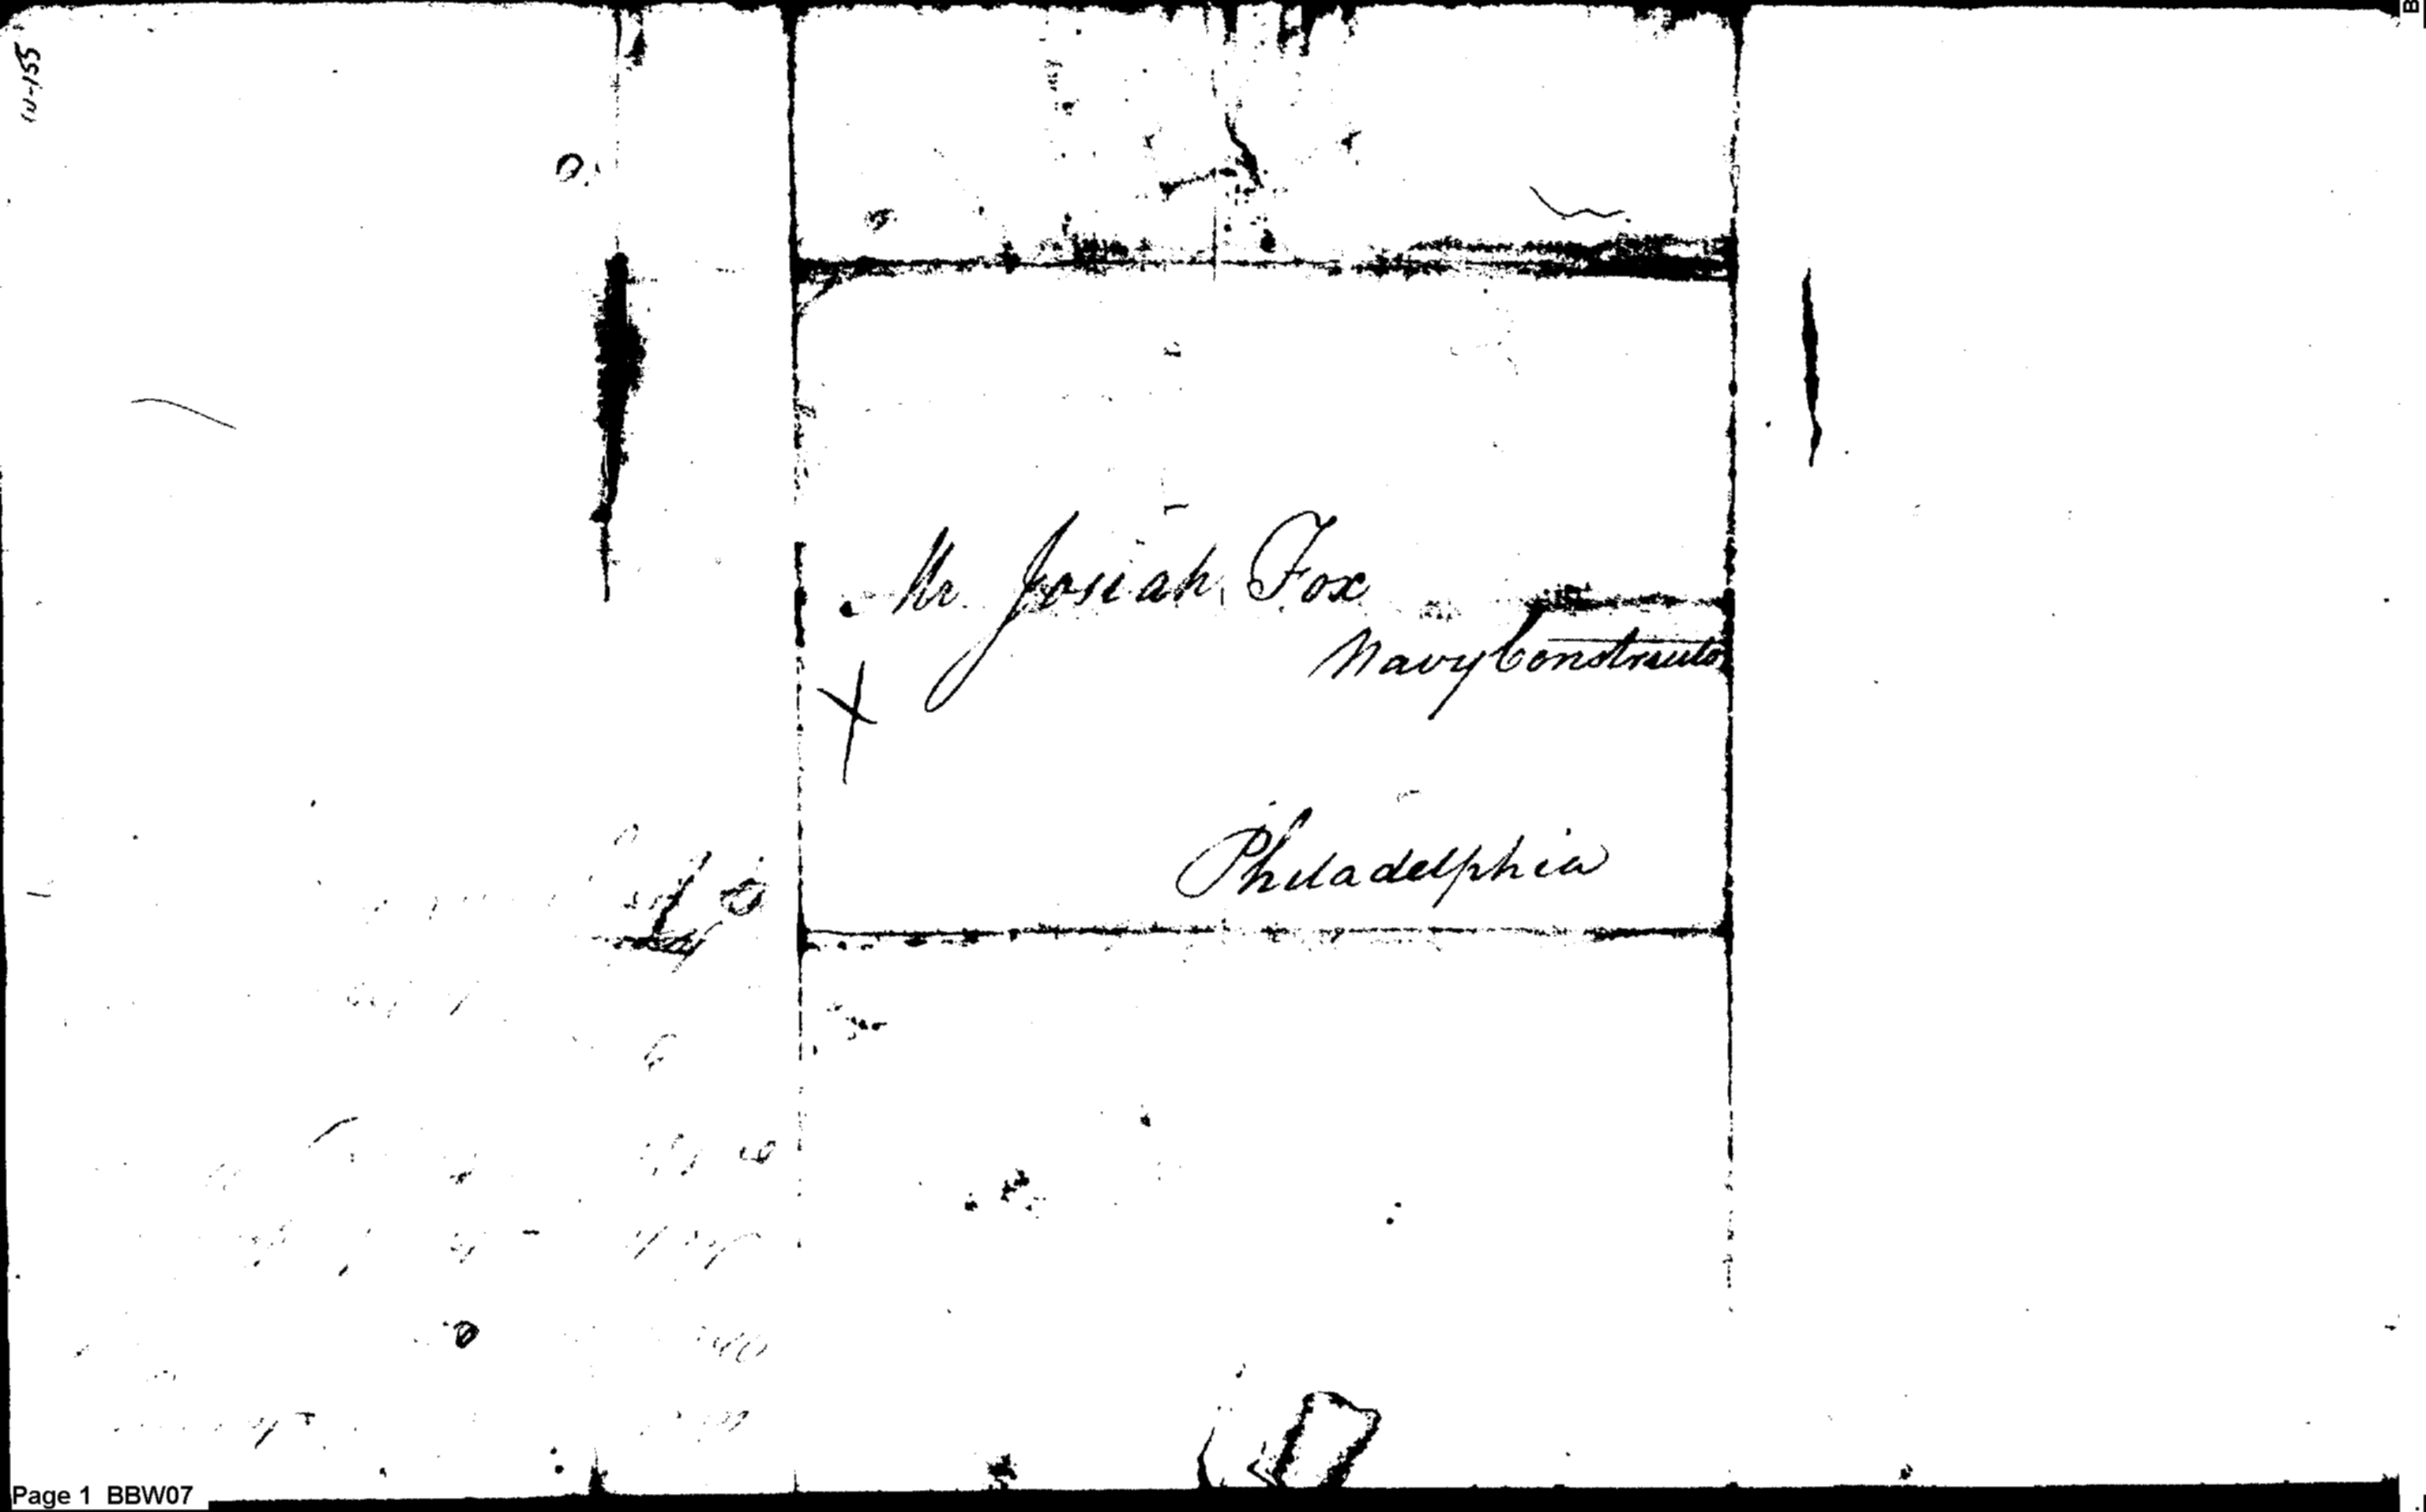 Mr. Josiah Fox
Navy Constructor
Philadelphia
Page 1 BBW07